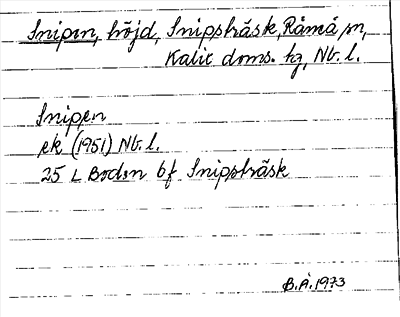 Snipen, höjd, Snippträsk, Råneå sn,
Kalix doms. hg, Nb. l.
Snipen
ek (1951) Nb. l.
25 L Boden bf Snippträsk
B.Å. 1973